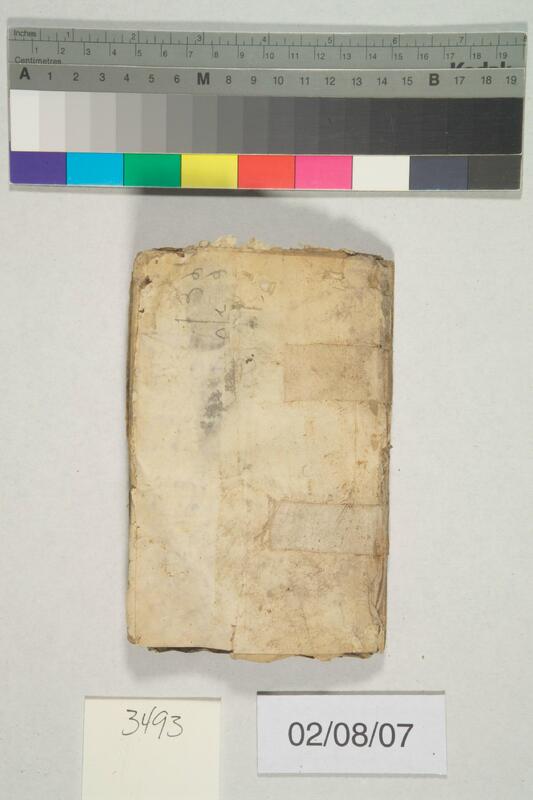 Inches 1 2 3 4 5 6 7 8
Centimetres 1 2 3 4 5 6 7 8 9 10 11 12 13 14 15 16 17 18 19
Kodak
A 1 2 3 4 5 6 M 8 9 10 11 12 13 14 15 B 17 18 19
3493
02/08/07